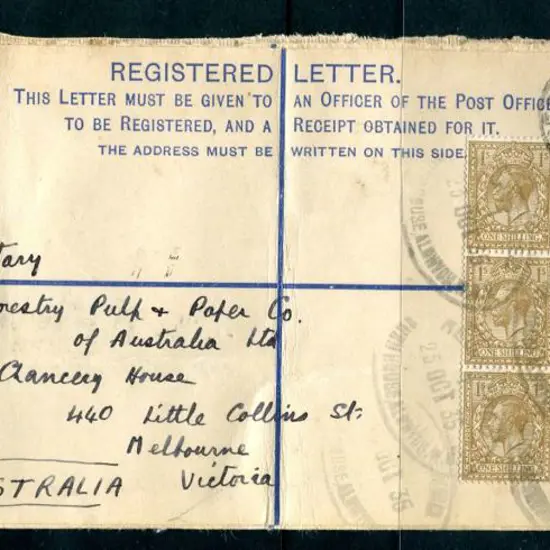 REGISTERED LETTER.
THIS LETTER MUST BE GIVEN TO AN OFFICER OF THE POST OFFIC
TO BE REGISTERED, AND A RECEIPT OBTAINED FOR IT.
THE ADDRESS MUST BE WRITTEN ON THIS SIDE.
tary
orestry Pulp + Paper Co.
of Australia Ltd
Chancery House
440 Little Collins St:
Melbourne
Victoria
STRALIA
ONE SHILLING
ONE SHILLING
ONE SHILLING
25 OCT 35
OCT 35